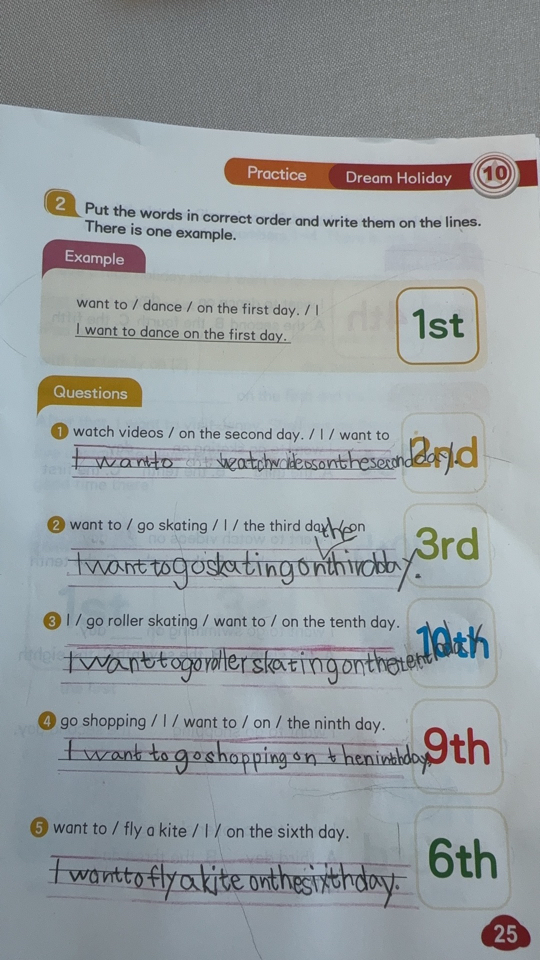 Practice
Dream Holiday
10
2 Put the words in correct order and write them on the lines.
There is one example.
Example
want to / dance / on the first day. / I
I want to dance on the first day.
1st
Questions
1 watch videos / on the second day. / I / want to
I wanto watchvideosonthesecondday.
2nd
2 want to / go skating / I / the third day. / on
the
Iwanttogoskatingonthirdday.
3rd
3 I / go roller skating / want to / on the tenth day.
Iwanttogorollerskatingonthetenthday
10th
4 go shopping / I / want to / on / the ninth day.
I want to goshopping on theninthday.
9th
5 want to / fly a kite / I / on the sixth day.
I wanttoflyakite onthesixthday.
6th
25